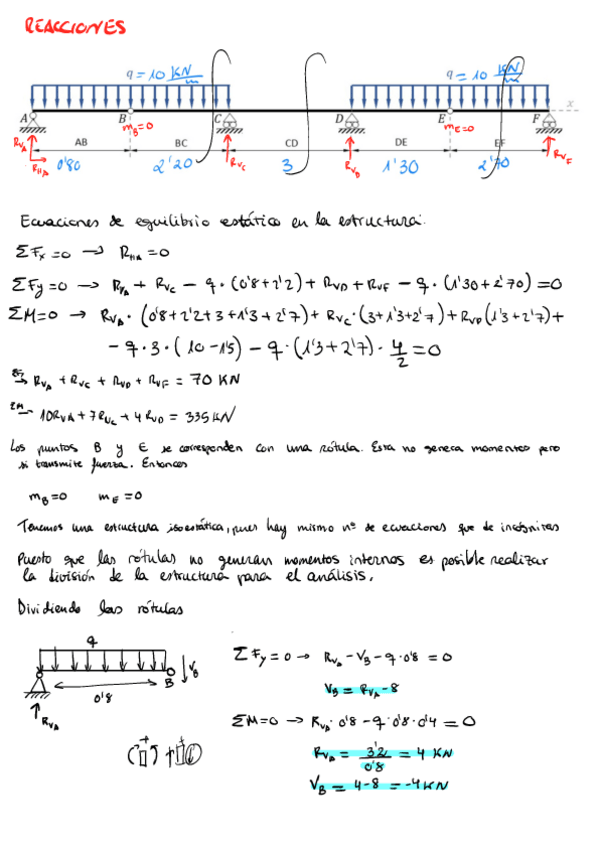 REACCIONES
q = 10 KN/m q = 10 KN/m
A B C D E F x
mB=0 mE=0
RVA RHA RVC RVD RVF
AB BC CD DE EF
0'80 2'20 3 1'30 2'70
Ecuaciones de equilibrio estático en la estructura.
ΣFx=0 → RHA=0
ΣFy=0 → RVA + RVC - q·(0'8+2'2) + RVD + RVF - q·(1'30+2'70) = 0
ΣM=0 → RVA·(0'8+2'2+3+1'3+2'7) + RVC·(3+1'3+2'7) + RVD(1'3+2'7) +
- q·3·(10-1'5) - q·(1'3+2'7)·4/2 = 0
RVA + RVC + RVD + RVF = 70 KN
ΣM 10RVA + 7RVC + 4RVD = 335 KN
Los puntos B y E se corresponden con una rótula. Esta no genera momentos pero
si transmite fuerza. Entonces
mB=0 mE=0
Tenemos una estructura isoestática, pues hay mismo nº de ecuaciones que de incógnitas
Puesto que las rótulas no generan momentos internos es posible realizar
la división de la estructura para el análisis.
Dividiendo las rótulas
q
B VB
0'8
RVA
ΣFy=0 → RVA - VB - q·0'8 = 0
VB = RVA - 8
ΣM=0 → RVA·0'8 - q·0'8·0'4 = 0
RVA = 3'2/0'8 = 4 KN
VB = 4-8 = -4KN